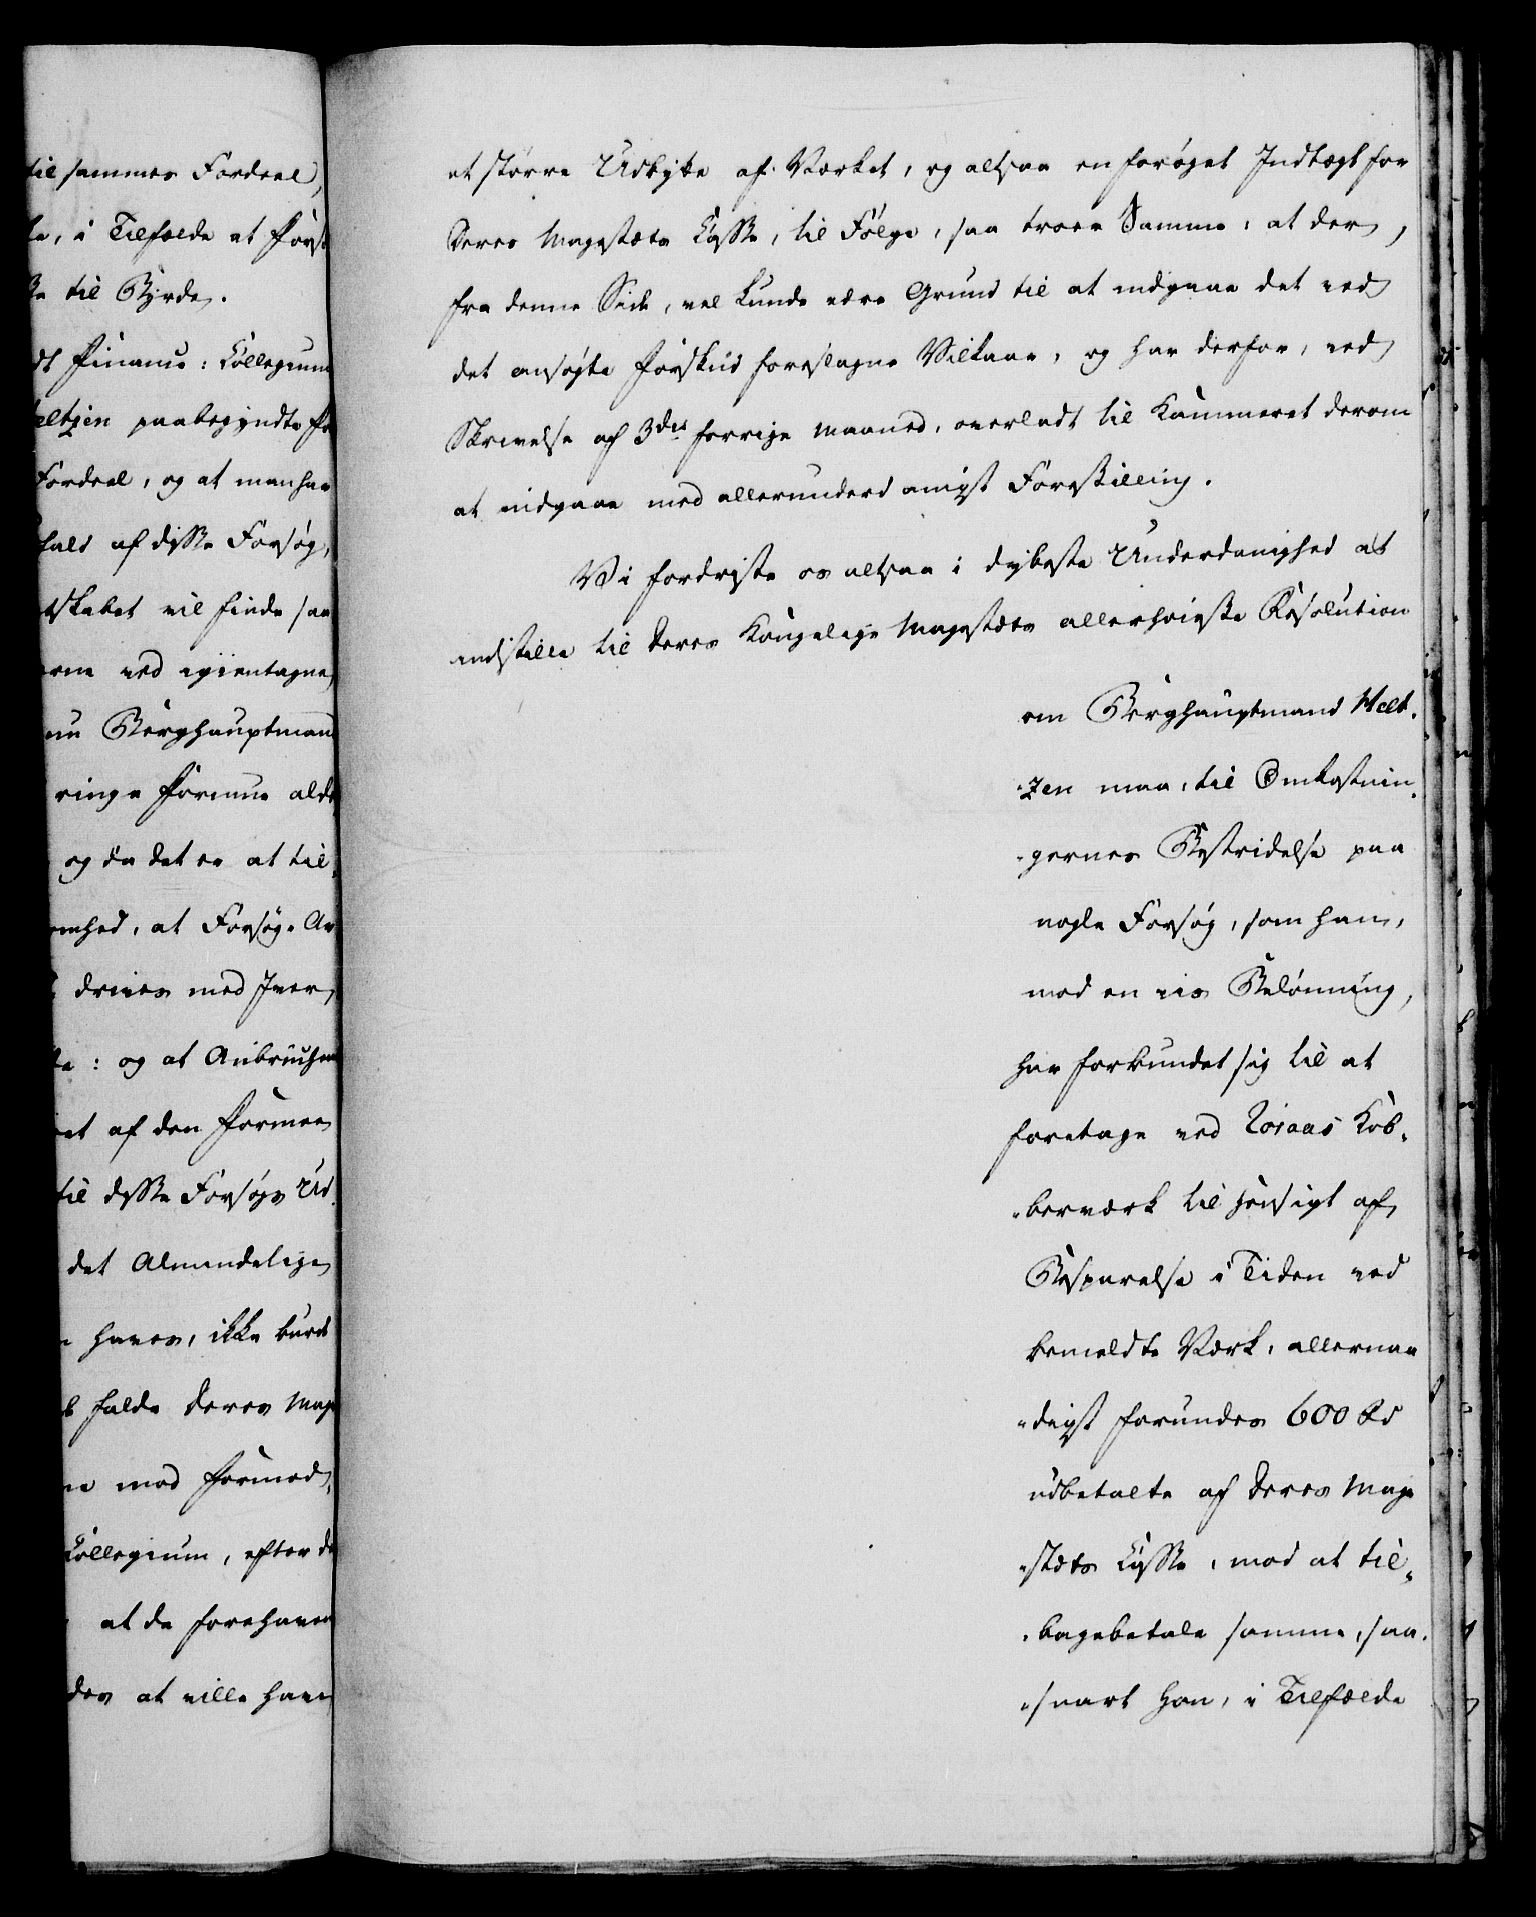 til sammes Fordeel,
i Tilfælde at Forst
til Byrde.
Finants: Collegium
eltzen paabegyndte
Fordeel, og at man har
hald af disse Forsøg,
tskabet vil finde saa
ved igientagne
Berghauptmand
ringe Formue
og da det er at til¸
omhed, at Forsøg
drives med Iver,
: og at Anbruchene
et af den Formue
til disse Forsøgs Ud
det Almindelige
haves, ikke burde
falde Deres Maje
mod Formod¸
Collegium, efter de
at de forehaven
des at ville have
et større Udbytte af Værket, og altsaa en forøget Indtægt for
Deres Majestæts Casse, til Følge, saa troer Samme: at der,
fra denne Side, vel kunde være Grund til at indgaae det ved
det ansøgte Forskud foreslagne Vilkaar, og har derfor, ved
Skrivelse af 3die forrige Maaned, overladt til Kammeret derom
at indgaae med allerunderdanigst Forestilling.
Vi fordriste os altsaa i dybeste Underdanighed at
indstille til Deres Kongelige Majestæts allerhøieste Resolution
om Berghauptmand Helt¸
¸zen maa, til Omkostnin¸
¸gernes Bestridelse paa
nogle Forsøg, som han,
mod en vis Belønning,
har forbundet sig til at
foretage ved Røraas Kob¸
¸berværk til Hensigt af
Besparelse i Tiden ved
bemeldte Værk, allernaa
¸digst forundes 600 Rd
udbetalte af Deres Maje
¸stæts Casse, mod at til¸
¸bagebetale samme, saa¸
¸snart han, i Tilfælde